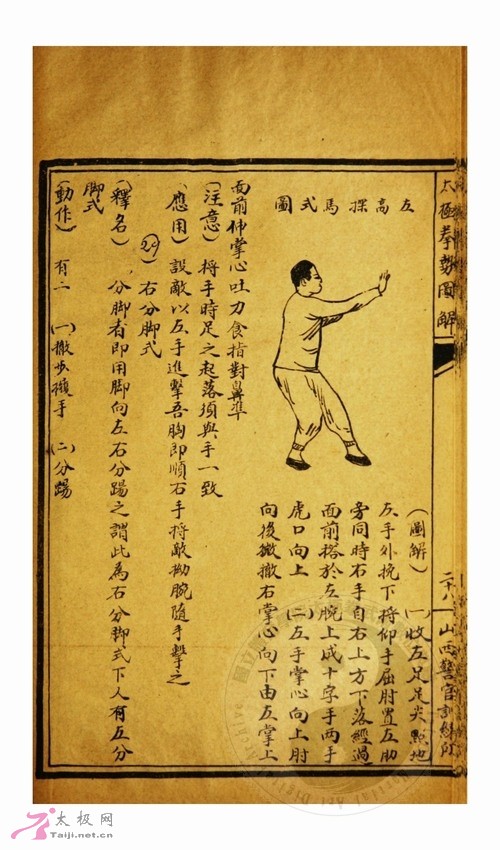 太極拳勢圖解
二十八
山西警官訓練所
左高探馬式圖
(圖解) (一)收左足足尖點地
左手外挽下捋仰手屈肘置左肋
旁同時右手自右上方下落經過
面前搭於左腕上成十字手兩手
虎口向上 (二)左手掌心向上肘
向後撤撤右掌心向下由左掌上
面前伸掌心吐力食指對鼻準
(注意) 捋手時足之起落須與手一致
(應用) 設敵以左手進擊吾胸即順右手捋敵拗腕隨手擊之
(29) 右分脚式
(釋名) 分脚者即用脚向左右分踢之謂此為右分脚式下人有左分
脚式
(動作) 有二 (一)撤步擴手 (二)分踢
太极网
Taiji.net.cn